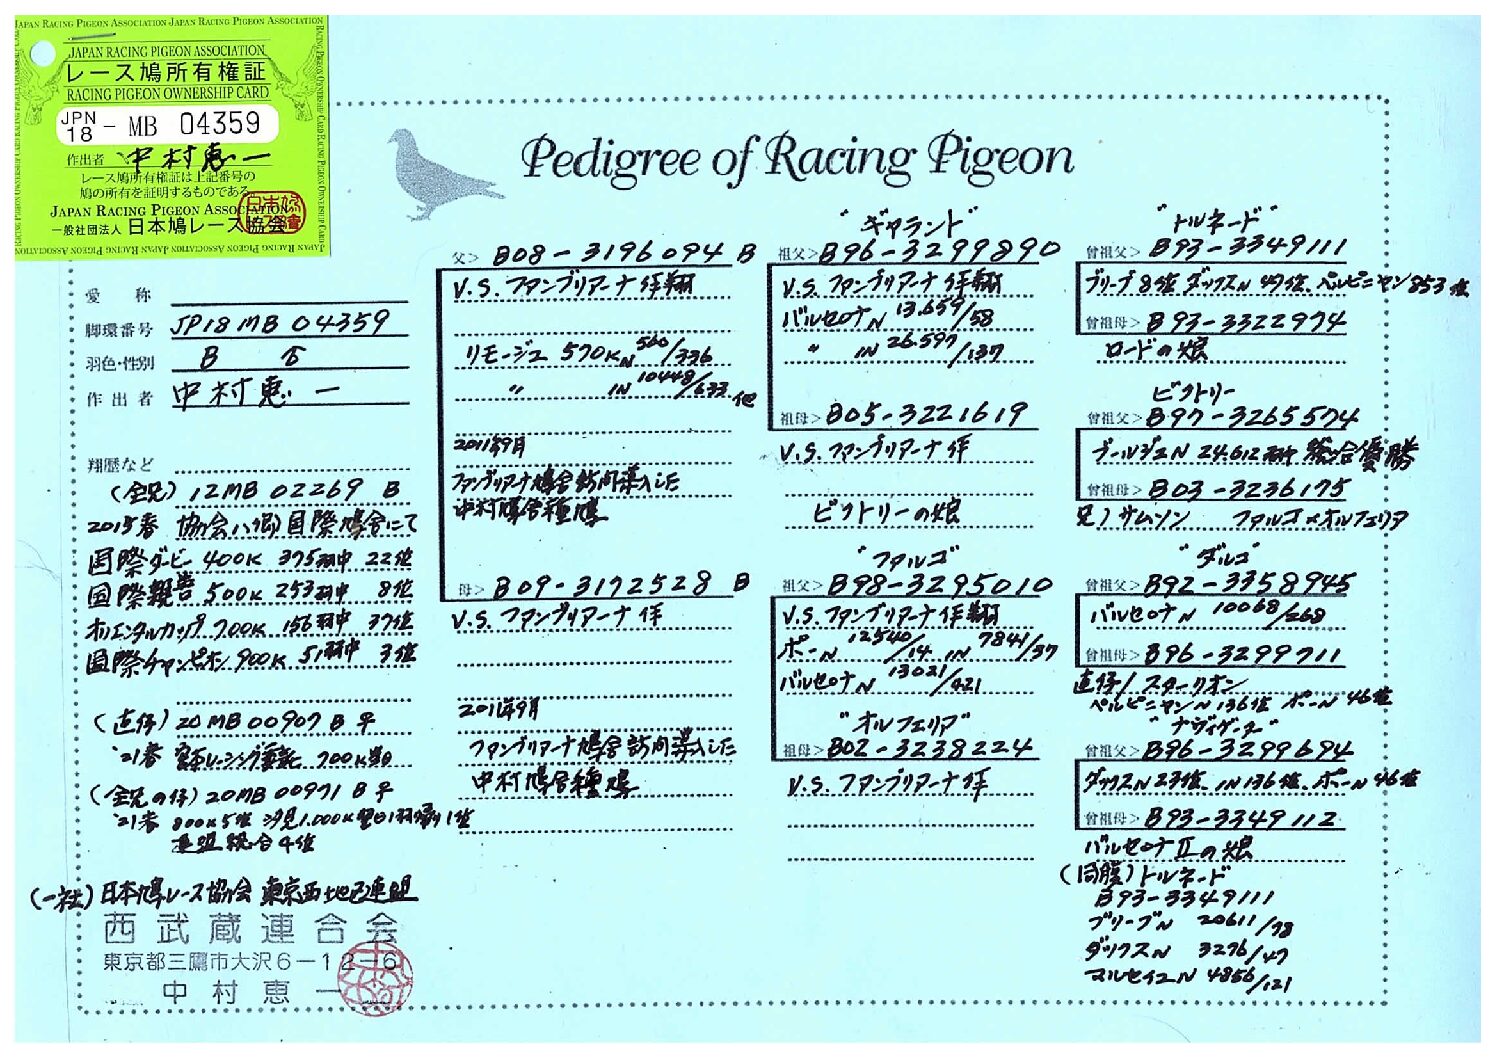 JAPAN RACING PIGEON ASSOCIATION JAPAN RACING PIGEON ASSOCIATION
JAPAN RACING PIGEON ASSOCIATION
レース鳩所有権証
RACING PIGEON OWNERSHIP CARD
JPN
18 - MB 04359
作出者 中村恵一
レース鳩所有権証は上記番号の
鳩の所有を証明するものである。
JAPAN RACING PIGEON ASSOCIATION
一般社団法人 日本鳩レース協会
Pedigree of Racing Pigeon
愛称
脚環番号 JP18MB 04359
羽色・性別 B ♂
作出者 中村恵一
翔歴など
(全兄) 12MB 02269 B
2015春 協会八郷国際鳩舎にて
国際ダービー 400K 375羽中 22位
国際親善 500K 253羽中 8位
オリエンタルカップ 700K 156羽中 37位
国際チャンピオン 900K 51羽中 3位
(直仔) 20MB 00907 B ♀
'21春 レーシング委託 700K
(全兄の仔) 20MB 00971 B ♀
'21春 800K5位 汐見1,000K翌日1羽帰り1位
連盟総合4位
(一社)日本鳩レース協会 東京西地区連盟
西武蔵連合会
東京都三鷹市大沢6-12-6
中村恵一
父> B08-3196094 B
V.S.ファンブリアーナ作翔
リモージュ 570K N 560/336
〃 IN 10448/633 他
2011年9月
ファンブリアーナ鳩舎訪問導入した
中村鳩舎種鳩
母> B09-3172528 B
V.S.ファンブリアーナ作
2011年9月
ファンブリアーナ鳩舎訪問導入した
中村鳩舎種鳩
"ギャランド"
祖父> B96-3299890
V.S.ファンブリアーナ作翔
バルセロナN 13.659/58
〃 IN 26.597/137
祖母> B05-3221619
V.S.ファンブリアーナ作
ビクトリーの娘
"ファルゴ"
祖父> B98-3295010
V.S.ファンブリアーナ作翔
ポーN 12540/14 IN 7841/37
バルセロナN 13021/421
"オルフェリア"
祖母> B02-3238224
V.S.ファンブリアーナ作
"トルネード"
曾祖父> B93-3349111
ブリーブ8位 ダックスN 47位 ペルピニャン853位
曾祖母> B93-3322974
ロードの娘
ビクトリー
曾祖父> B97-3265574
ブールジュN 24.612羽中 総合優勝
曾祖母> B03-3236175
兄/サムソン ファルゴ×オルフェリア
"ダルコ"
曾祖父> B92-3358945
バルセロナN 10068/268
曾祖母> B96-3299711
直仔/スターリオン
ペルピニャンN 136位 ポーN 46位
"ナヴィゲーター"
曾祖父> B96-3299694
ダックスN 23位 IN 136位 ポーN 46位
曾祖母> B93-3349112
バルセロナⅡの娘
(同腹)トルネード
B93-3349111
ブリーブN 20611/78
ダックスN 3276/47
マルセイユN 4856/121